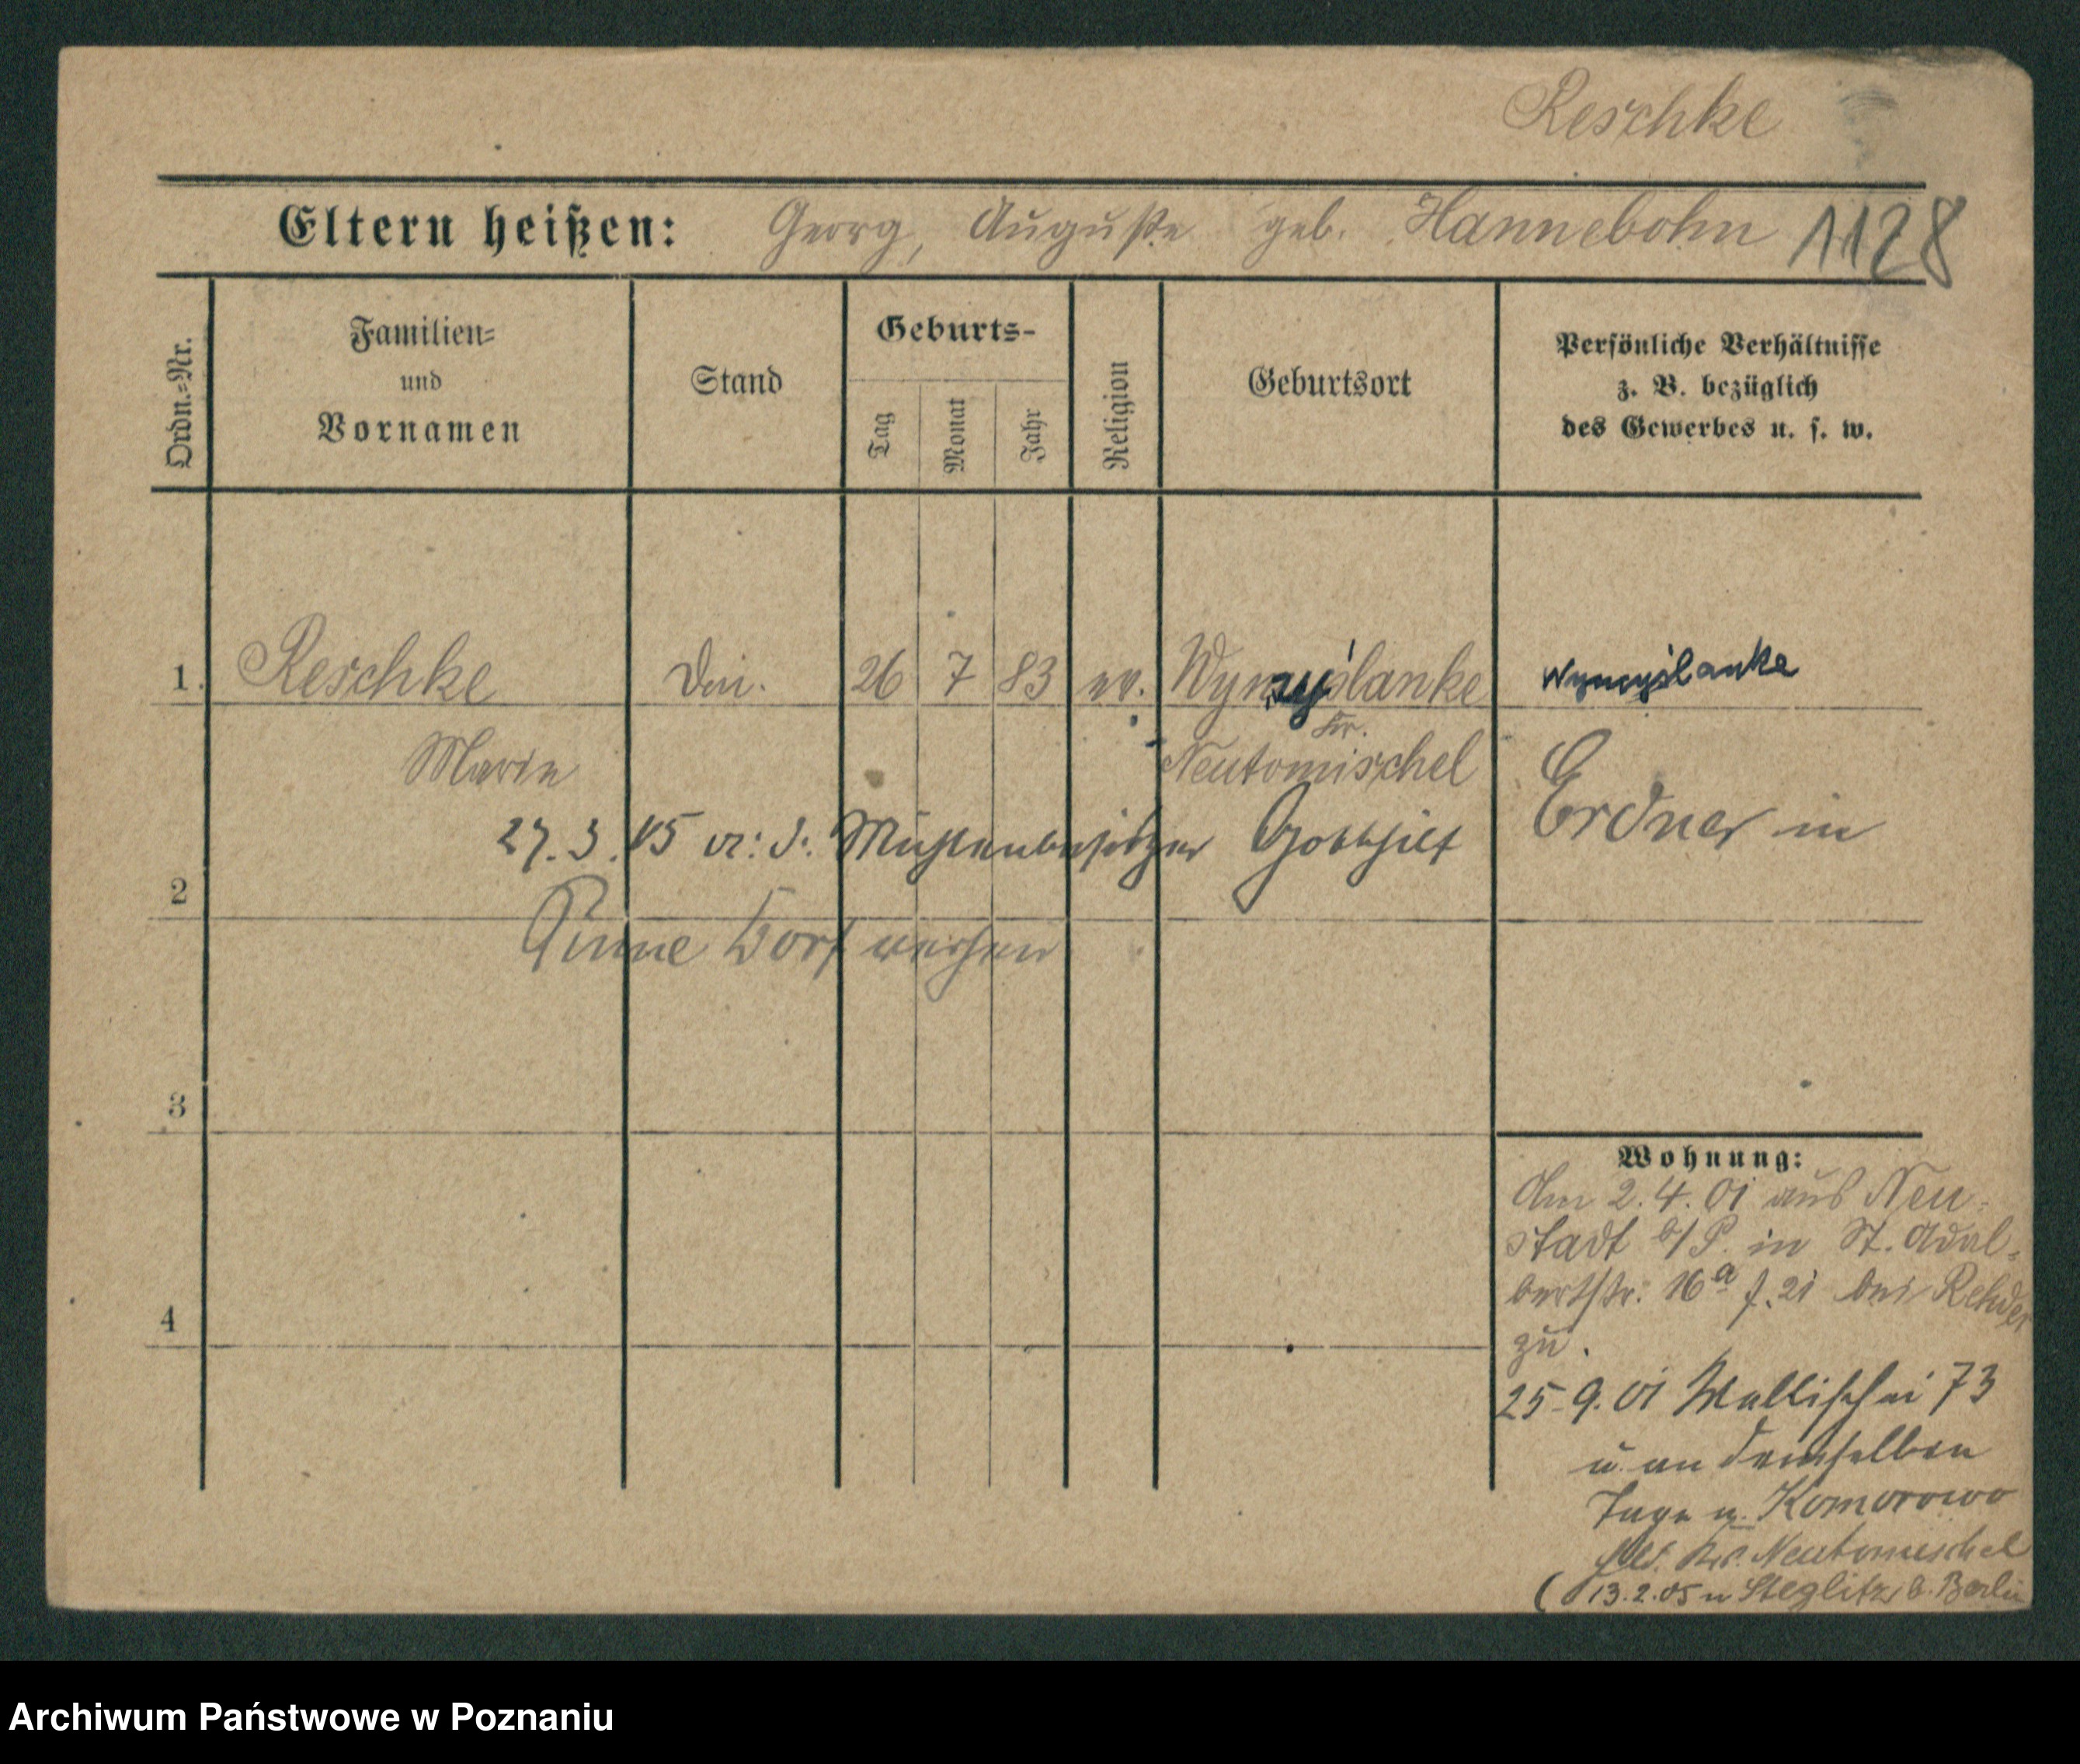 Reschke
Eltern heißen: Georg, Auguste geb. Hannebohn 1128
Ordn.-Nr.
Familien-
und
Vornamen
Stand
Geburts-
Tag
Monat
Jahr
Religion
Geburtsort
Persönliche Verhältnisse
z. B. bezüglich
des Gewerbes u. s. w.
1. Reschke Dm. 26 7 83 ev. Wymyślanke Wymyślanke
Kr.
Marie Neutomischel
27. 3. 05 Mühlenbesitzer Gotthilf Erdner in
2
Pinne Dorf
3
4
Wohnung:
Am 2. 4. 01 aus Neu-
stadt b/P. in St. Adal-
bertstr: 16a bei Rehder
zu.
25. 9. 01 Wallischei 73
u. an demselben
Tage n. Komorowo
Kr. Neutomischel
(13. 2. 05 n Steglitz b. Berlin
Archiwum Państwowe w Poznaniu